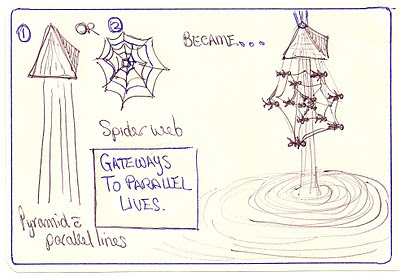 ① OR ②
BECAME...
Spider web
GATEWAYS
TO PARALLEL
LIVES.
Pyramid &
parallel lines